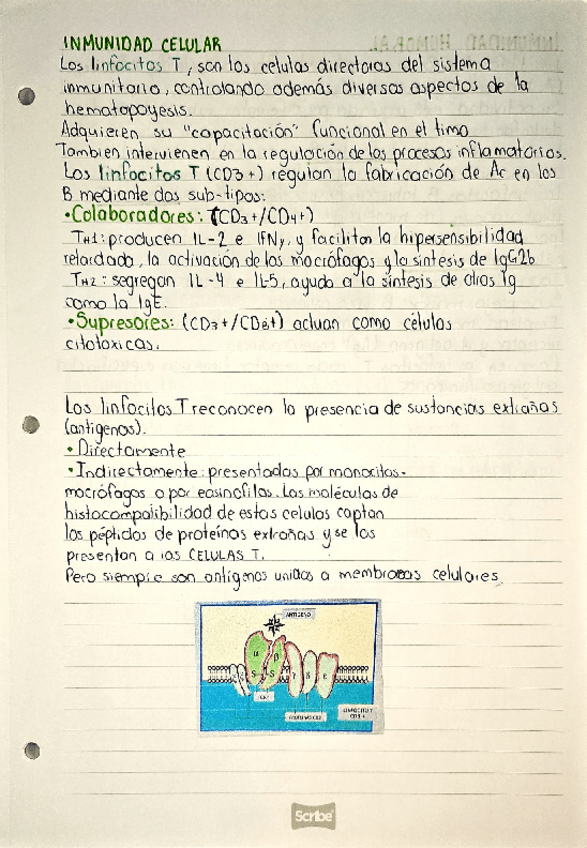 INMUNIDAD CELULAR
Los linfocitos T, son las celulas directoras del sistema
inmunitario, controlando además diversos aspectos de la
hematopoyesis.
Adquieren su "capacitación" funcional en el timo
Tambien intervienen en la regulación de los procesos inflamatorios.
Los linfocitos T (CD3+) regulan la fabricación de Ac en los
B mediante dos sub-tipos:
•Colaboradores: (CD3+/CD4+)
TH1: producen IL-2 e IFNγ, y facilitan la hipersensibilidad
retardada, la activación de los macrófagos y la síntesis de IgG2b
TH2: segregan IL-4 e IL-5, ayuda a la síntesis de otras Ig
como la IgE.
•Supresores: (CD3+/CD8+) actuan como células
citotoxicas.
Los linfocitos T reconocen la presencia de sustancias extrañas
(antigenos).
• Directamente
• Indirectamente: presentadas por monocitos-
macrófagos o por eosinofilos. Las moléculas de
histocompatibilidad de estas celulas captan
los péptidos de proteínas extrañas y se los
presentan a las CELULAS T.
Pero siempre son antígenos unidos a membranas celulares.
ANTIGENO
α β
S S
γ δ ε
LINFOCITO T
CD3+
Scribe